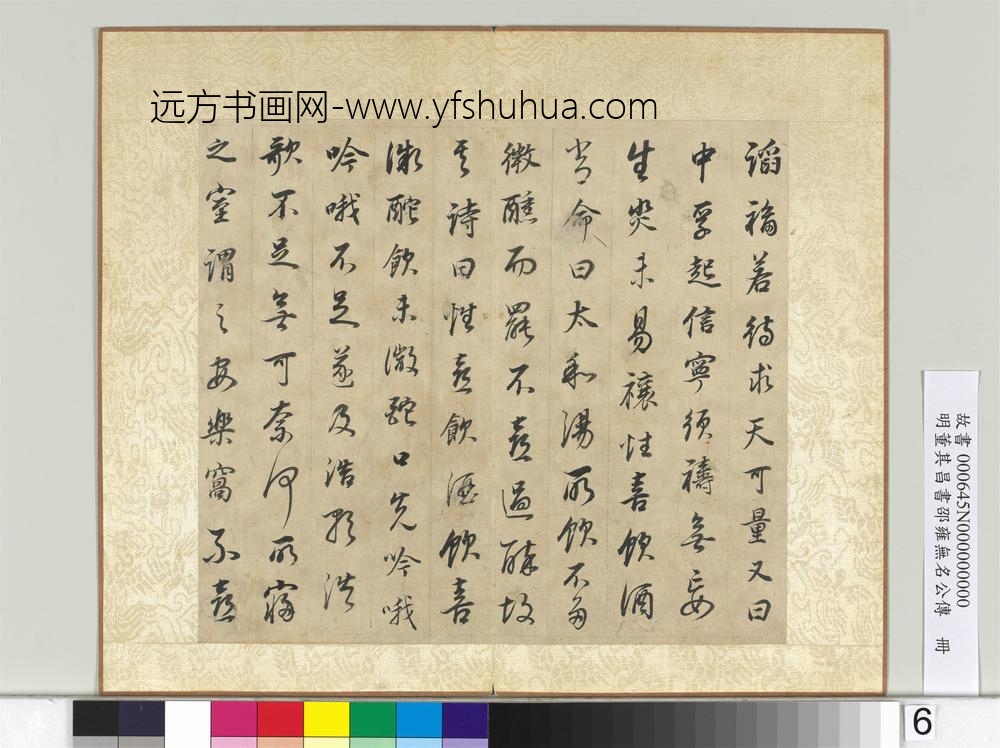 远方书画网-www.yfshuhua.com
謟福若待求天可量又曰
中孚起信寧須禱無妄
生災未易禳性喜飲酒
嘗命曰太和湯所飲不多
微醺而罷不喜過醉故
其詩曰性喜飲酒飲喜
微酡飲未微酡口先吟哦
吟哦不足遂及浩歌浩
歌不足無可奈何所寢
之室謂之安樂窩不喜
故書 000645N000000000
明董其昌書邵雍無名公傳 冊
6